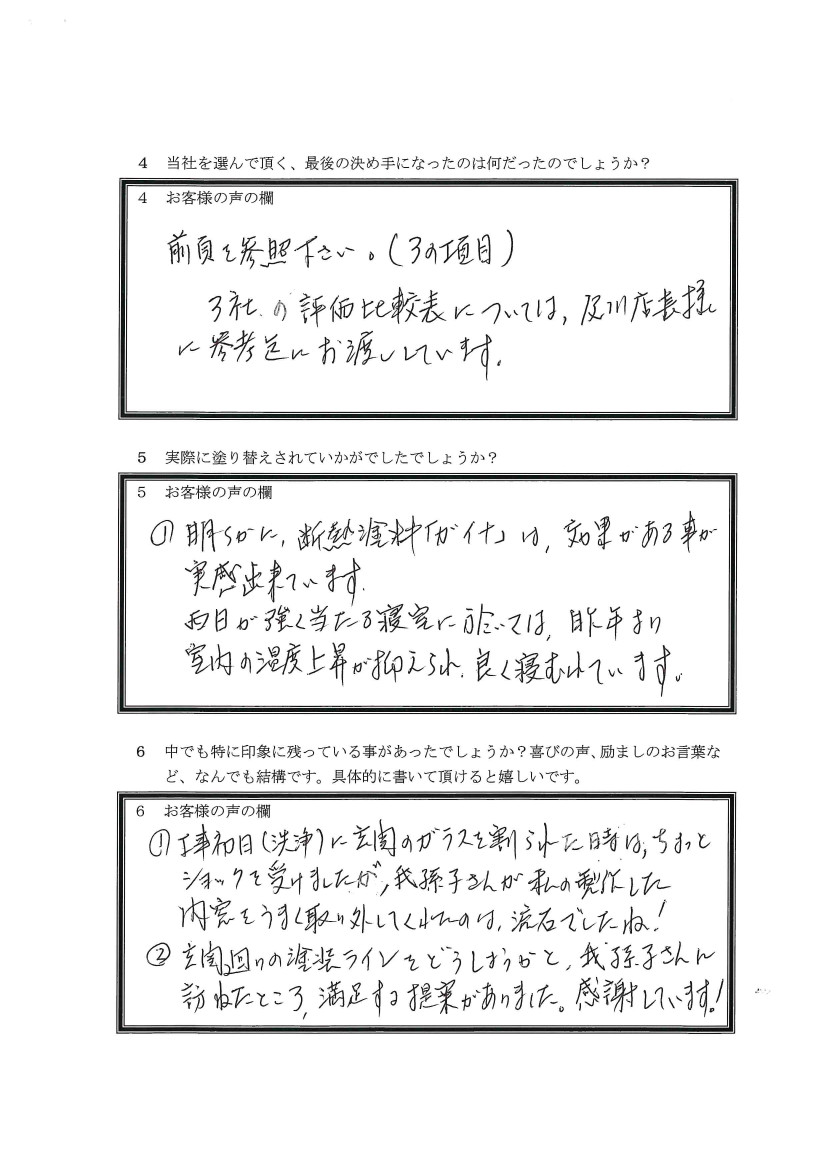 4 当社を選んで頂く、最後の決め手になったのは何だったのでしょうか？
4 お客様の声の欄
前頁を参照下さい。(3の項目)
3社の評価比較表については、及川店長様
に参考迄にお渡ししています。
5 実際に塗り替えされていかがでしたでしょうか？
5 お客様の声の欄
① 明らかに、断熱塗料「ガイナ」は、効果がある事が
実感出来ています。
西日が強く当たる寝室に於いては、昨年より
室内の温度上昇が抑えられ、良く寝むれています。
6 中でも特に印象に残っている事があったでしょうか？喜びの声、励ましのお言葉な
ど、なんでも結構です。具体的に書いて頂けると嬉しいです。
6 お客様の声の欄
① 工事初日(洗浄)に玄関のガラスを割られた時は、ちょっと
ショックを受けましたが、我孫子さんが私の製作した
内窓をうまく取り外してくれたのは、流石でしたね！
② 玄関回りの塗装ラインをどうしようかと、我孫子さんに
訪ねたところ、満足する提案がありました。感謝しています！